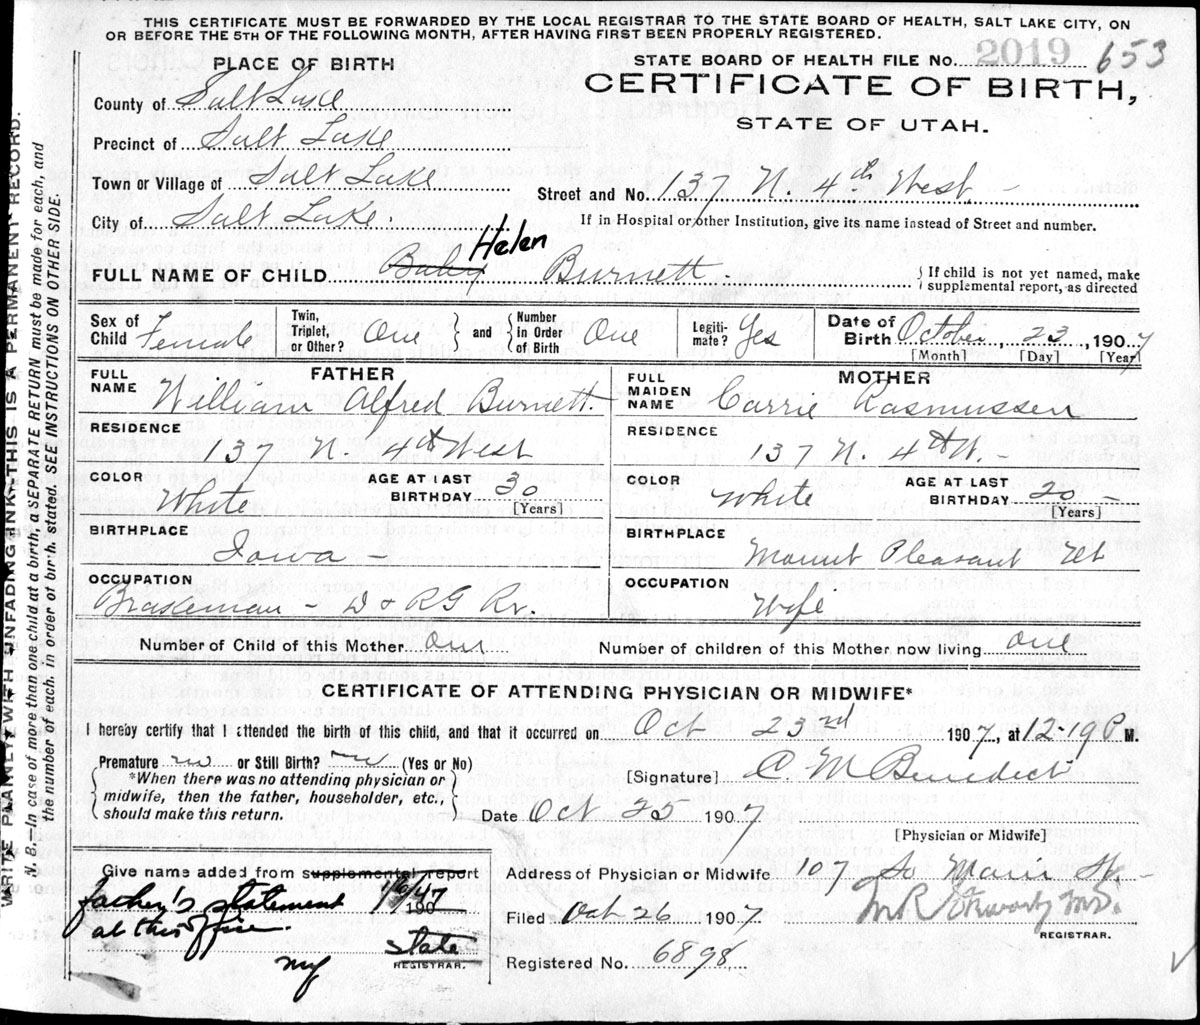 THIS CERTIFICATE MUST BE FORWARDED BY THE LOCAL REGISTRAR TO THE STATE BOARD OF HEALTH, SALT LAKE CITY, ON
OR BEFORE THE 5TH OF THE FOLLOWING MONTH, AFTER HAVING FIRST BEEN PROPERLY REGISTERED.
STATE BOARD OF HEALTH FILE No. 2019 653
PLACE OF BIRTH
CERTIFICATE OF BIRTH,
STATE OF UTAH.
County of Salt Lake
Precinct of Salt Lake
Town or Village of Salt Lake
Street and No. 137 N. 4th West. -
City of Salt Lake.
If in Hospital or other Institution, give its name instead of Street and number.
Helen
FULL NAME OF CHILD Baby Burnett.
If child is not yet named, make
supplemental report, as directed
Sex of Child Female
Twin, Triplet, or Other? One and Number in Order of Birth One
Legitimate? Yes
Date of Birth October, 23, 1907
[Month] [Day] [Year]
FATHER
FULL NAME William Alfred Burnett.
MOTHER
FULL MAIDEN NAME Carrie Rasmussen
RESIDENCE 137 N. 4th West
RESIDENCE 137 N. 4th W. -
COLOR White AGE AT LAST BIRTHDAY 30 [Years]
COLOR White AGE AT LAST BIRTHDAY 20 - [Years]
BIRTHPLACE Iowa -
BIRTHPLACE Mount Pleasant Ut
OCCUPATION Brakeman - D & RG Ry.
OCCUPATION Wife
Number of Child of this Mother One
Number of children of this Mother now living One
CERTIFICATE OF ATTENDING PHYSICIAN OR MIDWIFE*
I hereby certify that I attended the birth of this child, and that it occurred on Oct 23rd 1907, at 12-19 P M.
Premature no or Still Birth? no (Yes or No)
*When there was no attending physician or
midwife, then the father, householder, etc.,
should make this return.
[Signature] C M Benedict
Date Oct 25 1907
[Physician or Midwife]
Give name added from supplemental report
father's statement 1/6/47 190
at this office.
my state
REGISTRAR.
Address of Physician or Midwife 107 So Main St. -
Filed Oct 26 1907
REGISTRAR.
Registered No. 6898
WRITE PLAINLY WITH UNFADING INK-THIS IS A PERMANENT RECORD.
N. B.-In case of more than one child at a birth, a SEPARATE RETURN must be made for each, and
the number of each, in order of birth, stated. SEE INSTRUCTIONS ON OTHER SIDE.